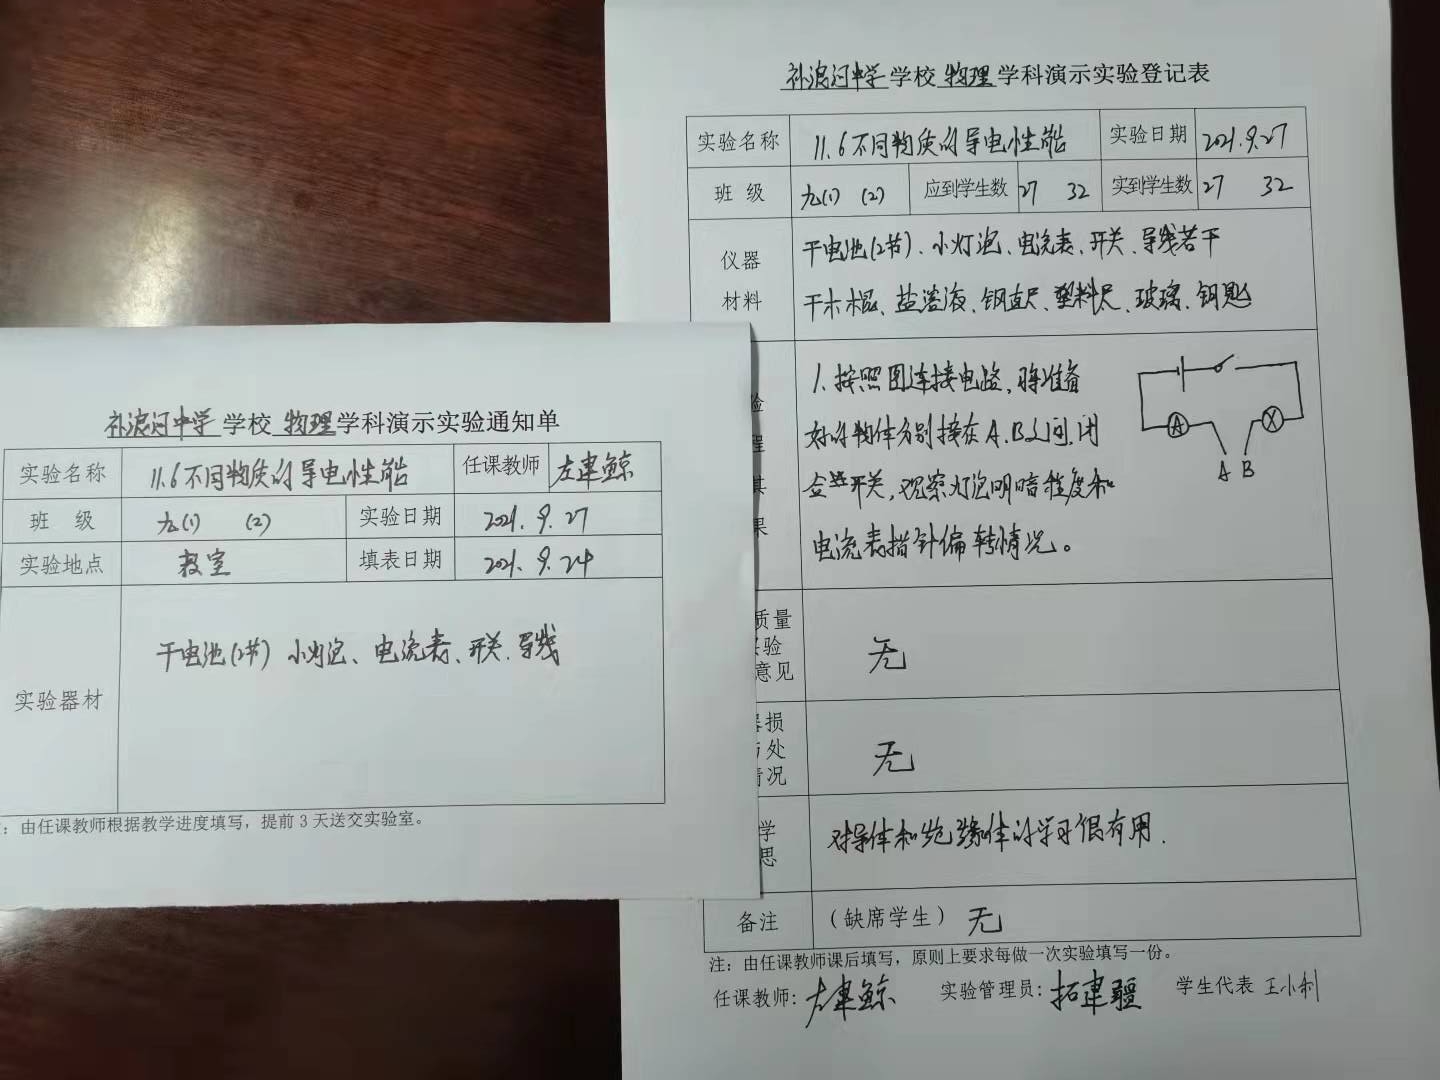 补浪河中学 学校 物理 学科演示实验通知单
实验名称 11.6不同物质的导电性能 任课教师 左建鲸
班 级 九(1) (2) 实验日期 2021.9.27
实验地点 教室 填表日期 2021.9.24
实验器材 干电池(2节) 小灯泡、电流表、开关、导线
：由任课教师根据教学进度填写，提前3天送交实验室。
补浪河中学 学校 物理 学科演示实验登记表
实验名称 11.6不同物质的导电性能 实验日期 2021.9.27
班 级 九(1) (2) 应到学生数 27 32 实到学生数 27 32
仪器
材料
干电池(2节)、小灯泡、电流表、开关、导线若干
干木棍、盐溶液、钢直尺、塑料尺、玻璃、钥匙
验
程
其
果
1.按照图连接电路，将准备
好的物体分别接在A、B之间，闭
合开关，观察灯泡明暗程度和
电流表指针偏转情况。
A
X
A B
质量
验
意见
无
损
与处
情况
无
学
思
对导体和绝缘体的学习很有用.
备注 （缺席学生） 无
注：由任课教师课后填写，原则上要求每做一次实验填写一份。
任课教师: 左建鲸 实验管理员: 拓建疆 学生代表 王小利